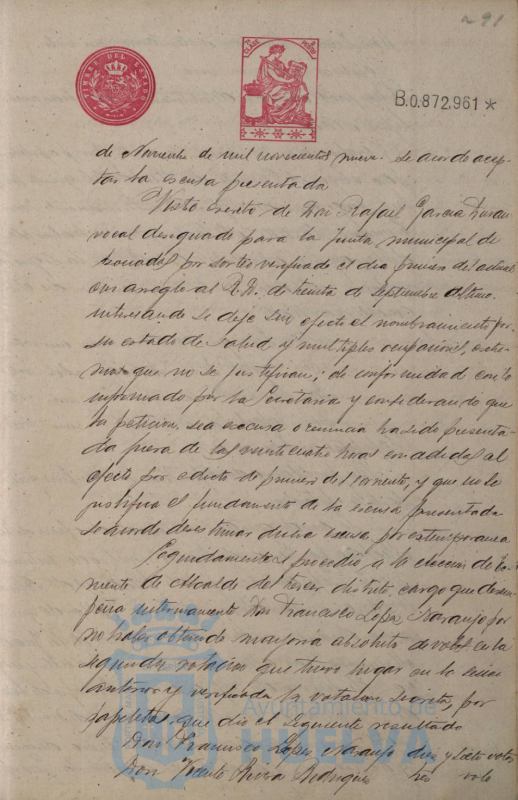 291
TIMBRE DEL ESTADO
7ª CLASE
B.0.872,961 *
de Noviembre de mil novecientos nueve. Se acordó acep-
tar la escusa presentada
Visto escrito de Don Rafael García Duran
vocal designado para la Junta municipal de
Asociados por sorteo verificado el dia primero del actual
con arreglo al R.D. de treinta de Septiembre último
interesando se deje sin efecto el nombramiento por
su estado de salud y multiples ocupaciones, extre-
mos que no se justifican; de conformidad con lo
informado por la Secretaria y considerando que
la peticion, sea escusa o renuncia ha sido presenta-
da fuera de las veinticuatro horas concedidas al
efecto por edicto de primero del corriente, y que no se
justifica el fundamento de la escusa presentada
se acordó desestimar dicha escusa por extemporanea
Seguidamente se procedió a la eleccion de Te-
niente de Alcalde del tercer distrito, cargo que desem-
peña interinamente Don Francisco Lopez Naranjo por
no haber obtenido mayoria absoluta de votos en la
segunda votacion que tuvo lugar en la sesion
anterior y verificada la votacion secreta, por
papeletas, que dió el siguiente resultado
Don Francisco Lopez Naranjo diez y siete votos
Don Vicente Rivera Rodriguez tres voto
Ayuntamiento de
HUELVA